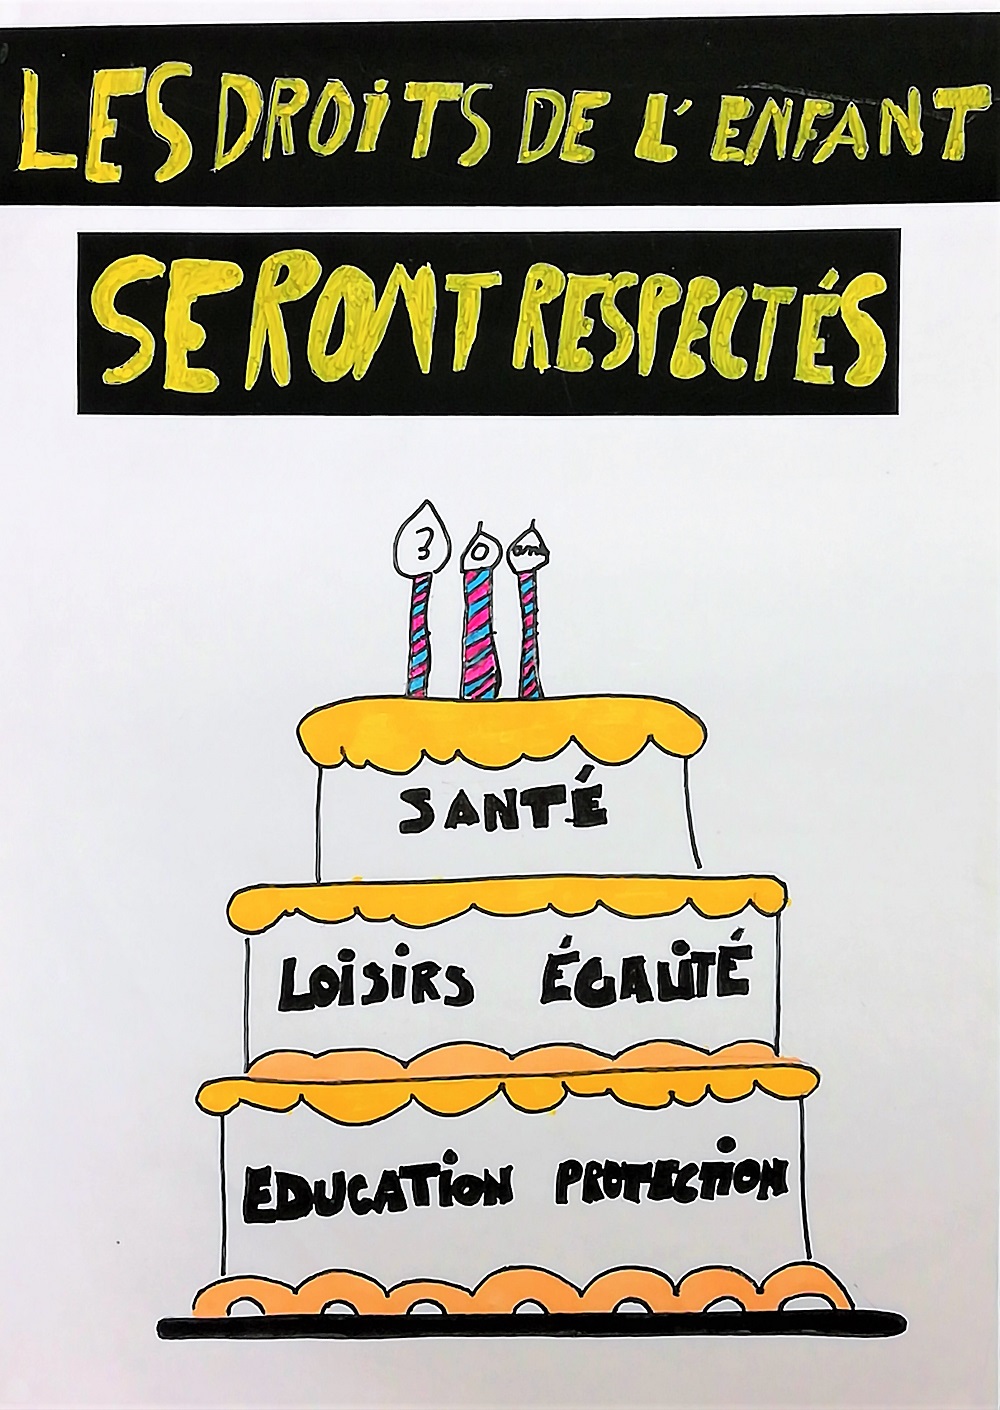 LES DROITS DE L'ENFANT
SERONT RESPECTÉS
3 0 ans
SANTÉ
LOISIRS ÉGALITÉ
EDUCATION PROTECTION